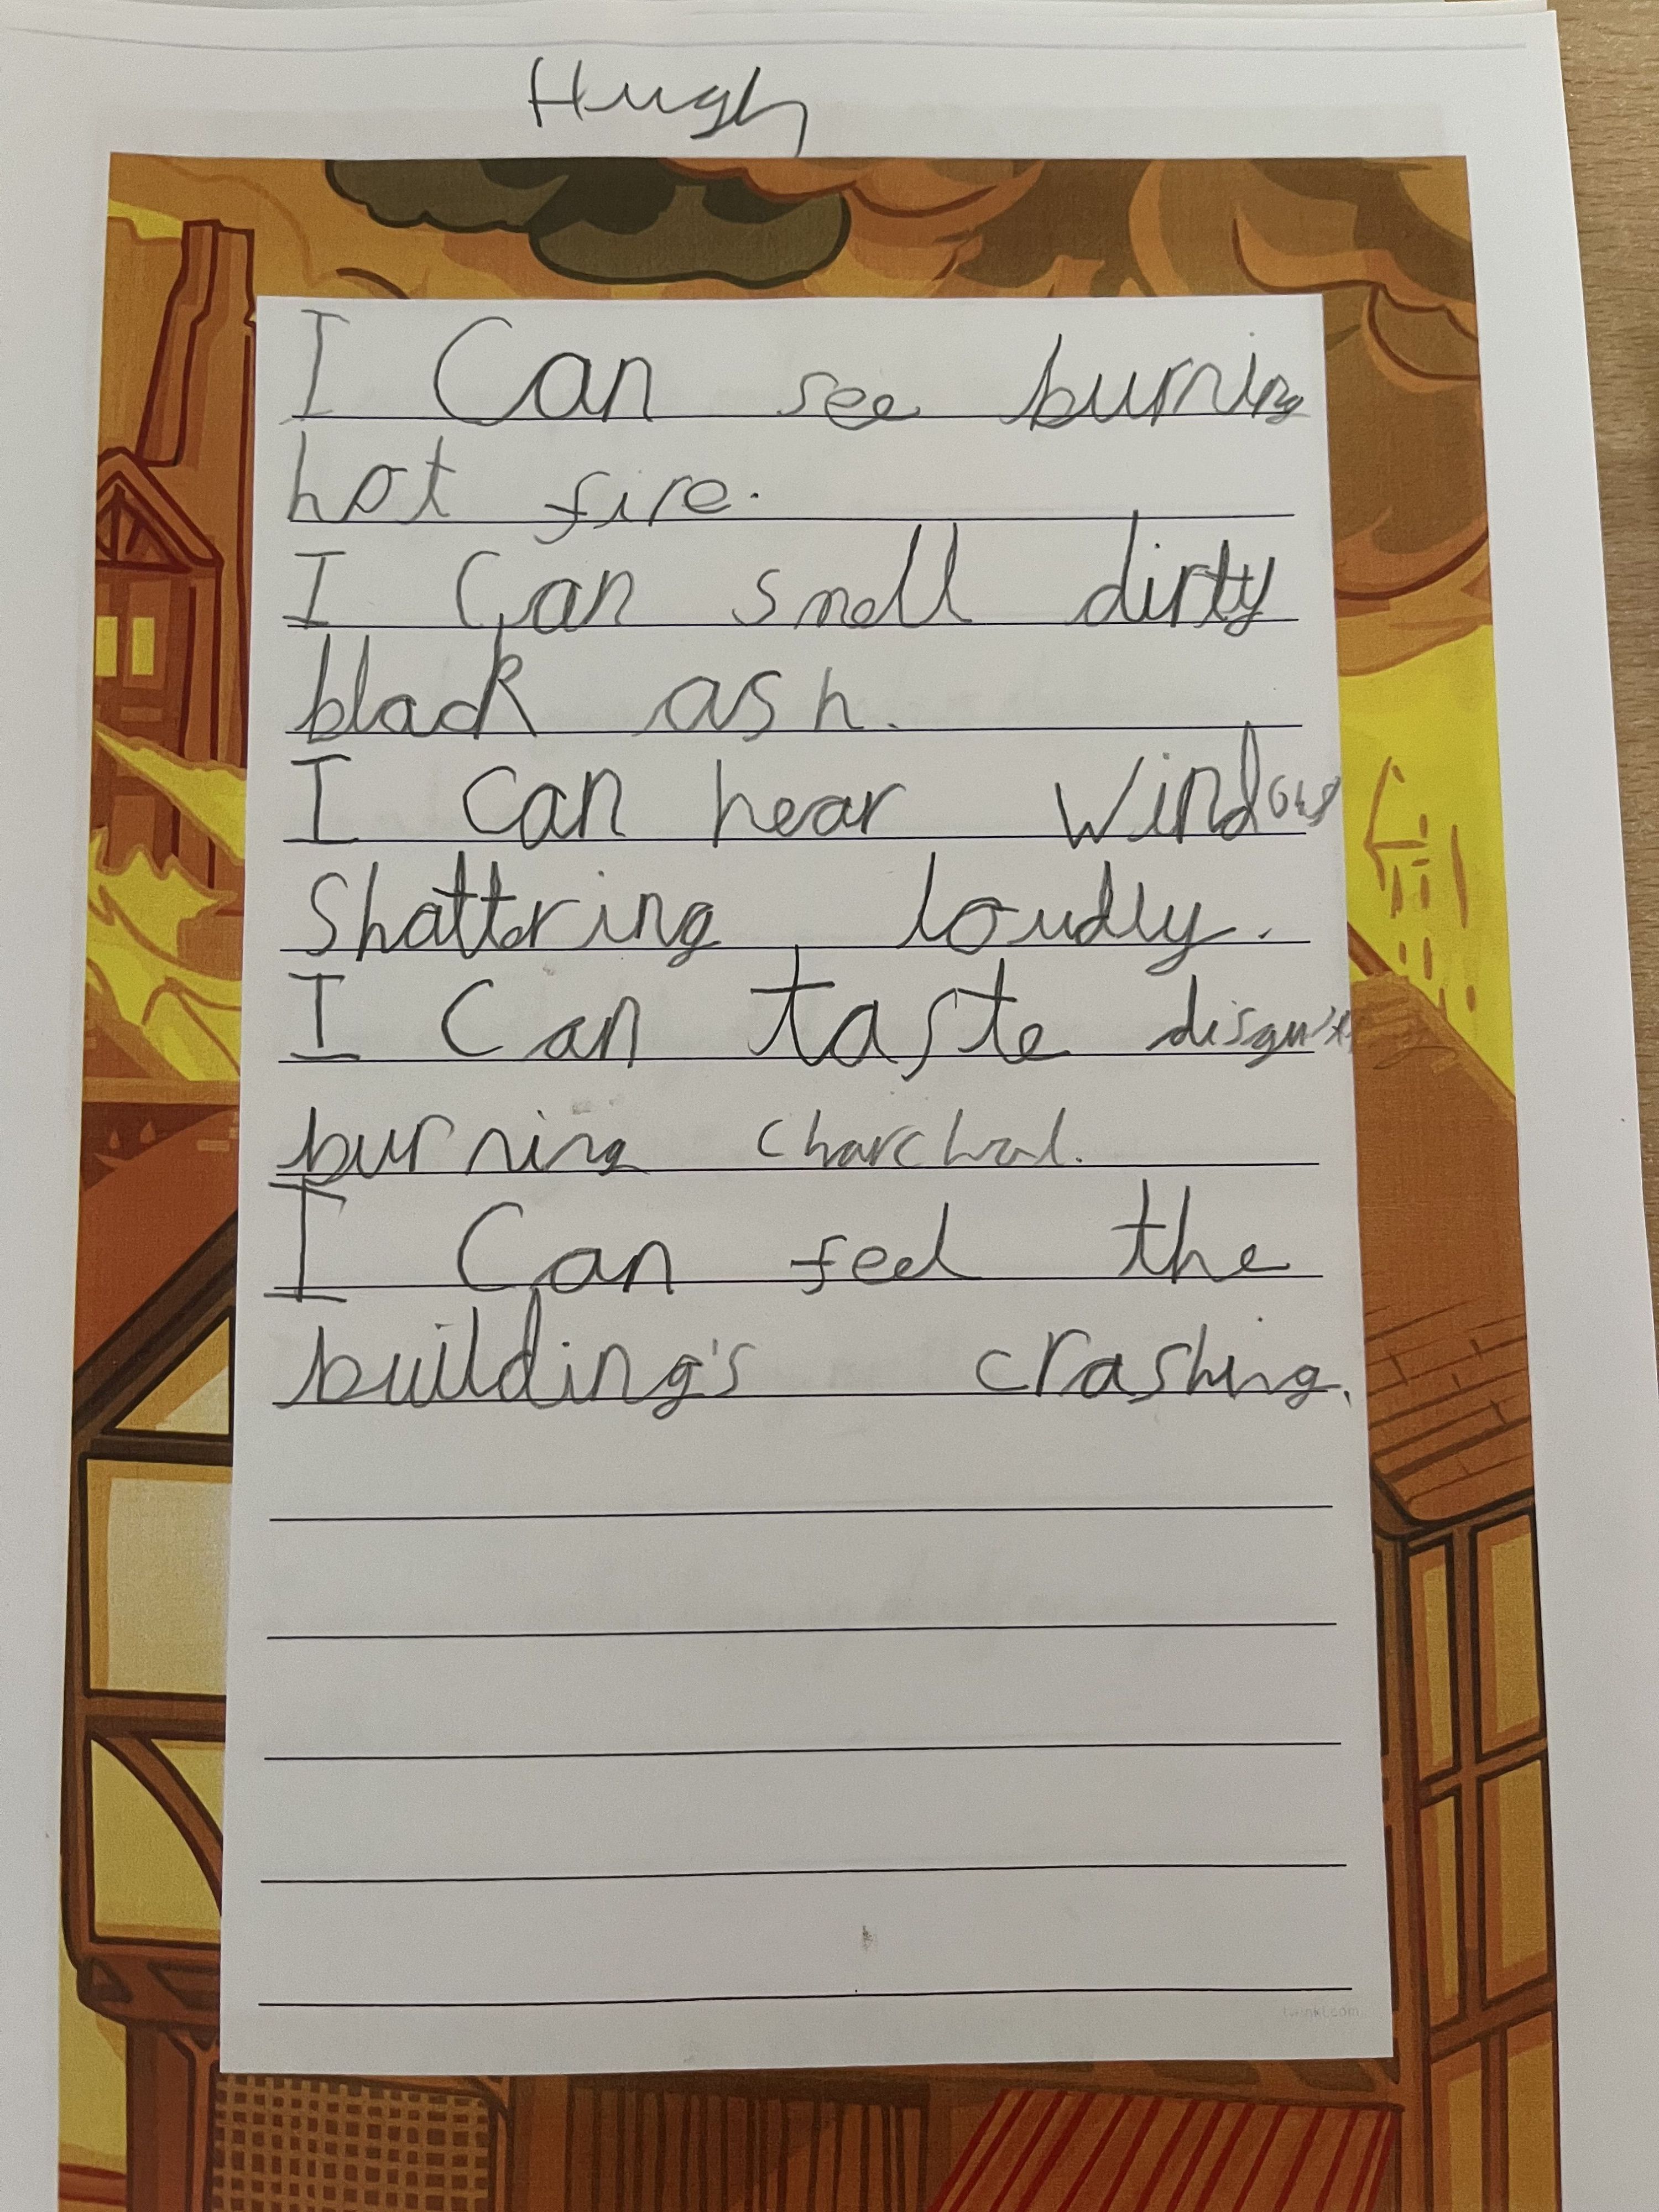 Hugh
I Can see burning
hot fire.
I Can smell dirty
black ash.
I can hear windows
Shattering loudly.
I Can taste
burning charchol.
I Can feel the
building's crashing.
twinkl.com